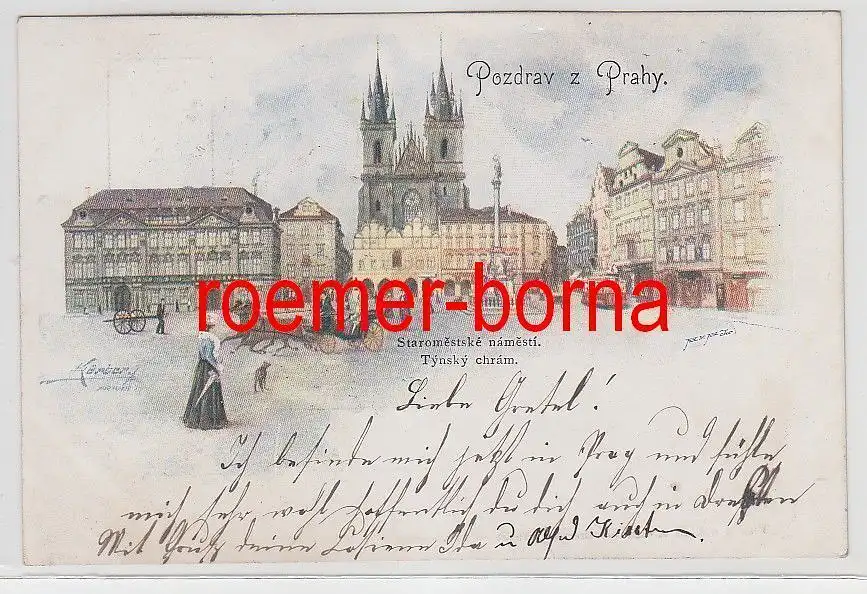 Pozdrav z Prahy.
roemer-borna
Staroměstské náměstí.
Týnský chrám.
Körber
Liebe Gretel!
Ich befinde mich jetzt in Prag und fühle
mich sehr wohl hoffentlich du dich auch in Dresden
Mit Gruß deine Ida u